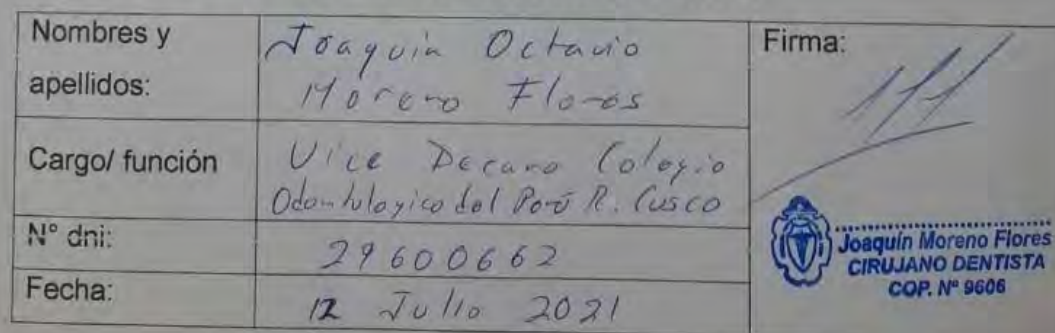 Nombres y apellidos:
Joaquin Octavio
Moreno Flores
Firma:
Cargo/ función
Vice Decano Colegio
Odontologico del Perú R. Cusco
N° dni:
29600662
Fecha:
12 Julio 2021
Joaquín Moreno Flores
CIRUJANO DENTISTA
COP. Nº 9606